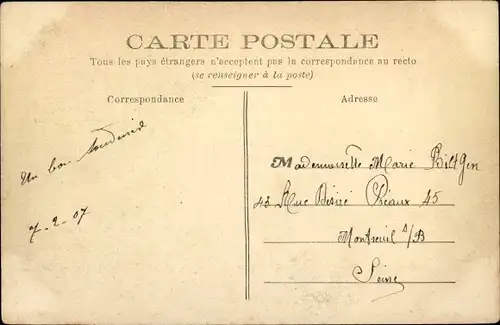 CARTE POSTALE
Tous les pays étrangers n'acceptent pas la correspondance au recto
(se renseigner à la poste)
Correspondance
Un bon souvenir
7-2-07
Adresse
Mademoiselle Marie Biltgen
43 Rue Désiré Chéaux 45
Montreuil s/B
Seine